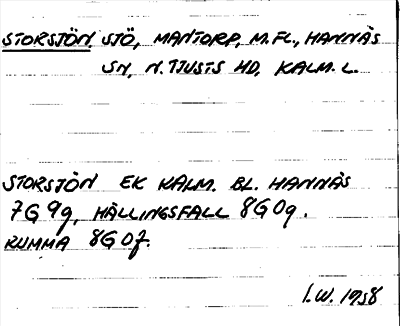 STORSJÖN, SJÖ, MANTORP, M.FL., HANNÄS
SN, N. TJUSTS HD, KALM. L.
STORSJÖN EK KALM. BL. HANNÄS
7G 9g, HÄLLINGSFALL 8G0g.
RUMMA 8G0f.
I.W. 1958